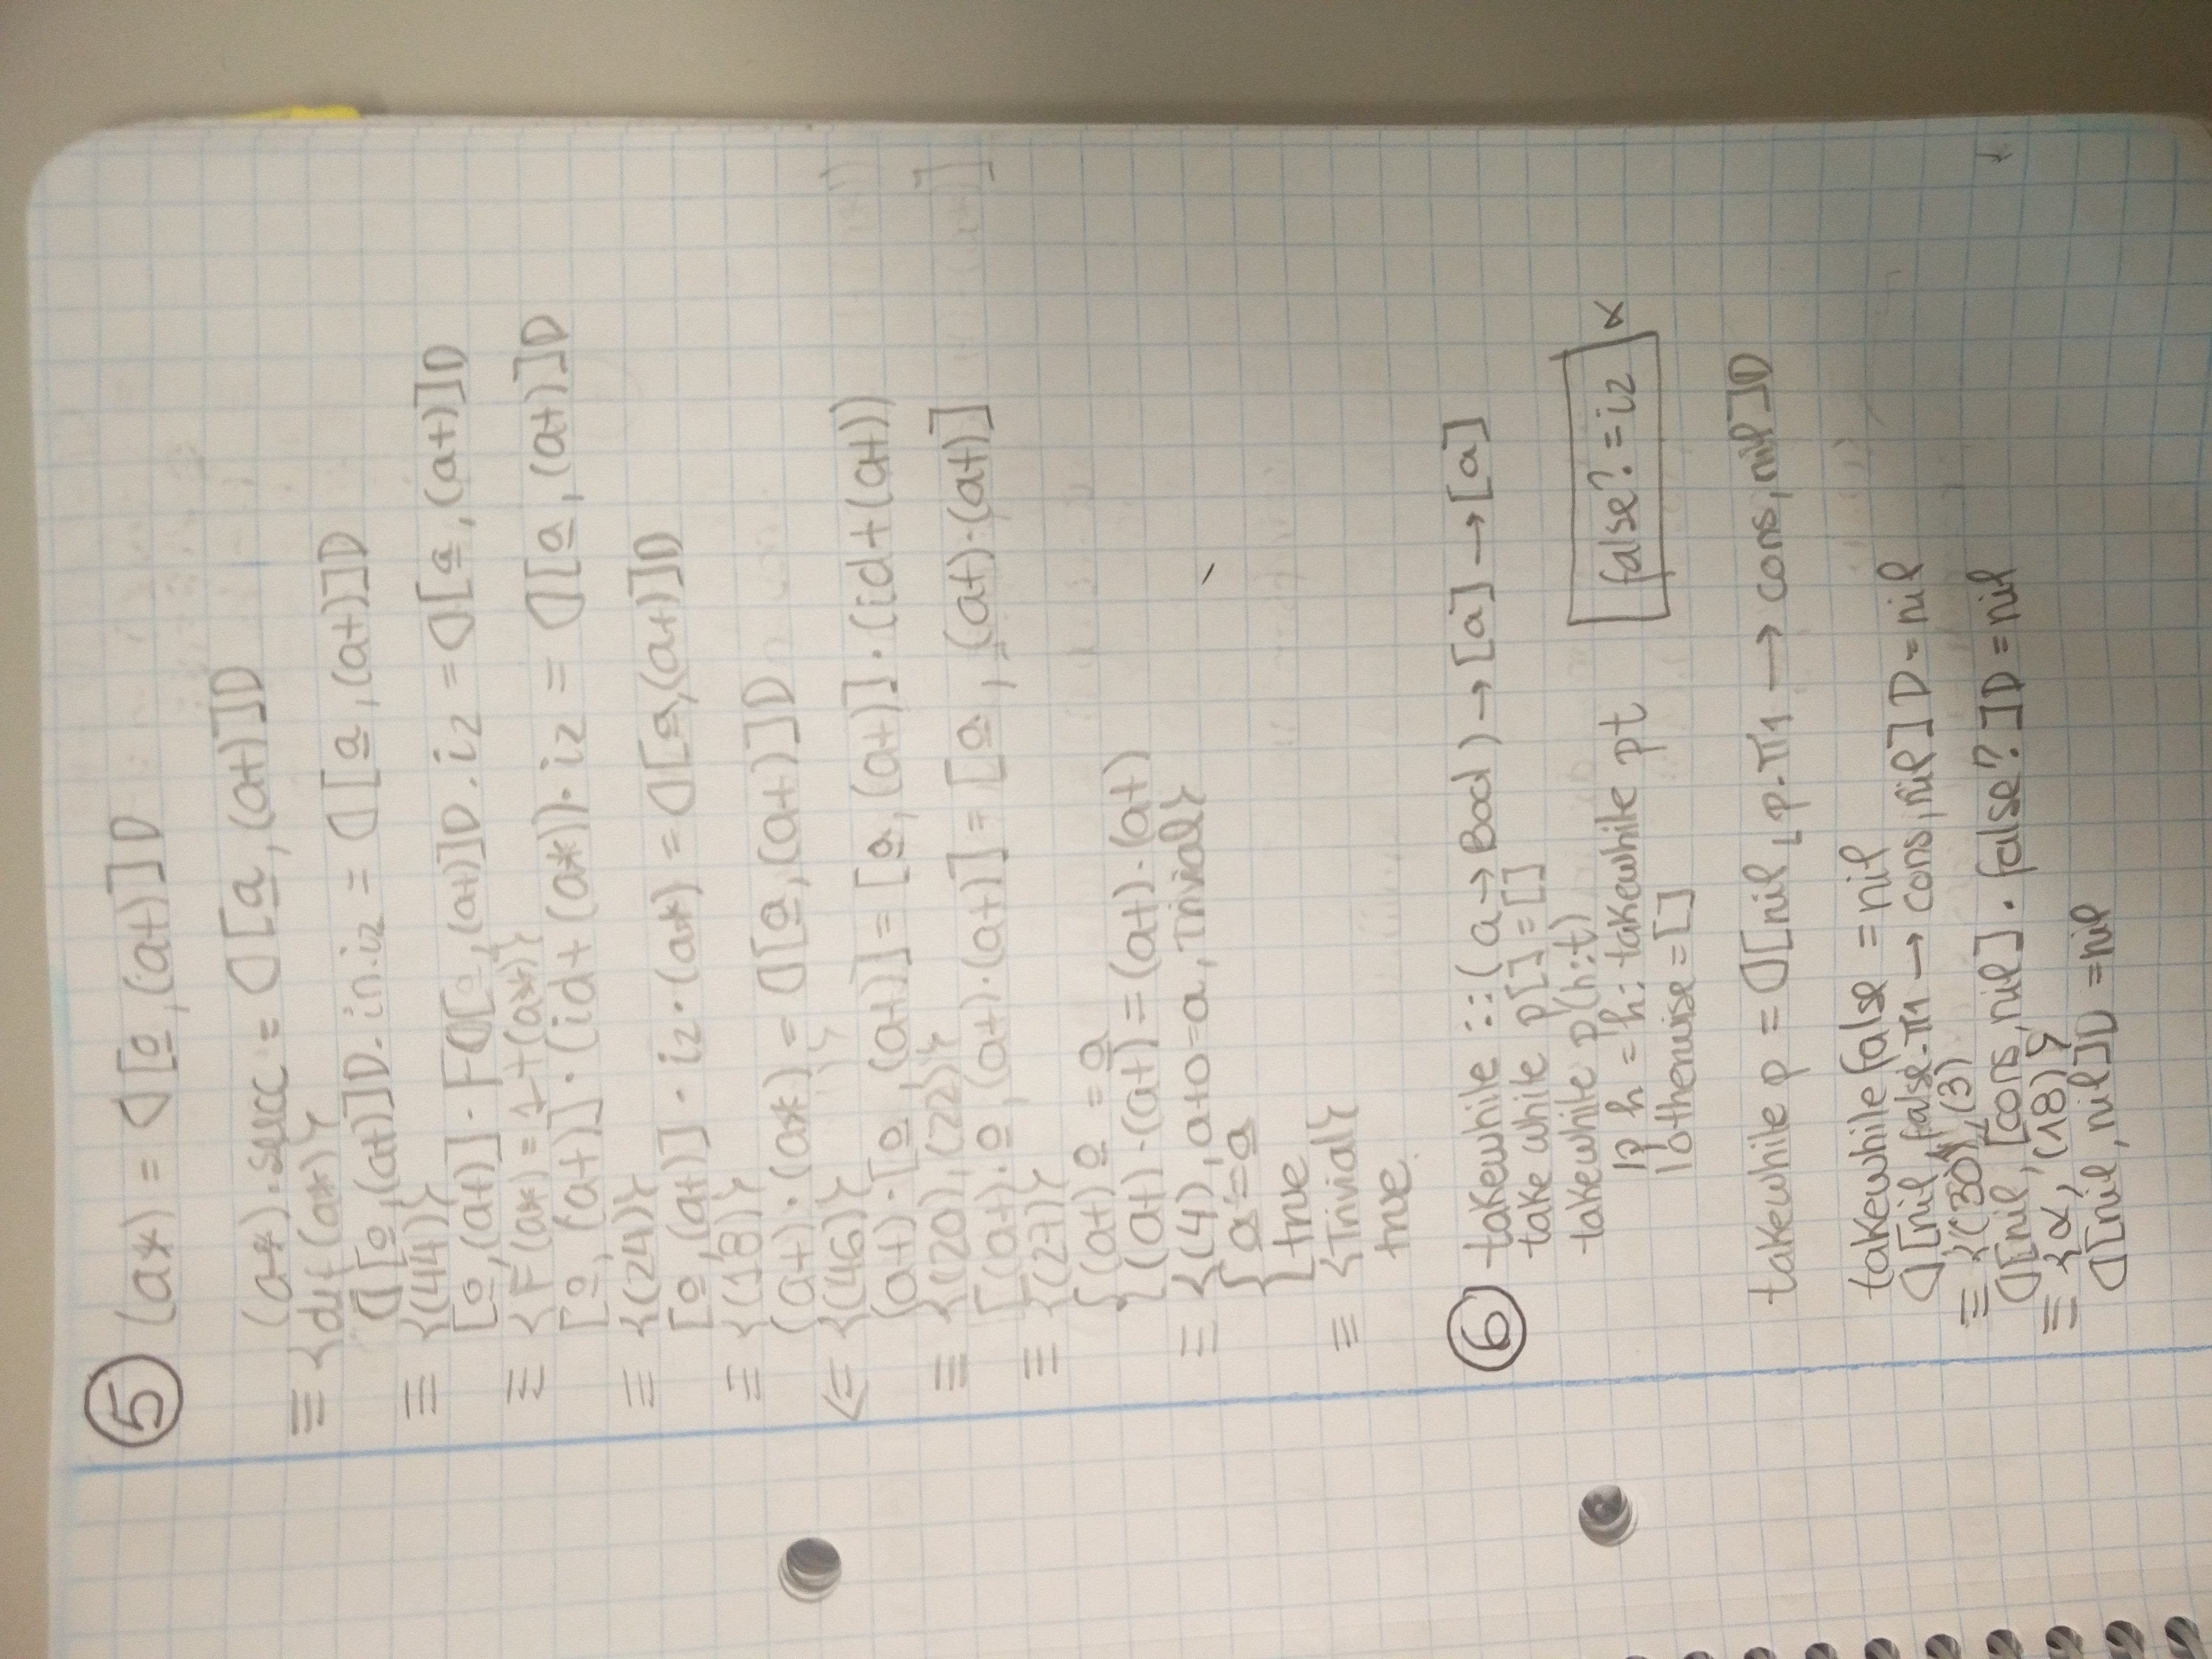 ⑤ (a*) = ⦇[0̲,(a+)]⦈
(a*)·succ = ⦇[a̲,(a+)]⦈
≡ {def(a*)}
⦇[0̲,(a+)]⦈·in·i₂ = ⦇[a̲,(a+)]⦈
≡ {(44)}
[0̲,(a+)]·F⦇[0̲,(a+)]⦈.i₂ = ⦇[a̲,(a+)]⦈
≡ {F(a*) = 1+(a*)}
[0̲,(a+)]·(id+(a*))·i₂ = ⦇[a̲,(a+)]⦈
≡ {(24)}
[0̲,(a+)]·i₂·(a*) = ⦇[a̲,(a+)]⦈
≡ {(18)}
(a+)·(a*) = ⦇[a̲,(a+)]⦈
<= {(46)}
(a+)·[0̲,(a+)] = [a̲,(a+)]·(id+(a+))
≡ {(20),(22)}
[(a+)·0̲,(a+)·(a+)] = [a̲,(a+)·(a+)]
≡ {(27)}
{(a+) 0̲ = a̲
{(a+)·(a+) = (a+)·(a+)
≡ {(4), a+0=a, Trivial}
{a̲ = a̲
{true
≡ {Trivial}
true
⑥ takewhile ::(a→Bool)→[a]→[a]
take while p[]=[]
takewhile p(h:t)
|p h = h: takewhile pt
false? = i₂ α
|otherwise=[]
takewhile p = ⦇[nil, p.π1 → cons, nil]⦈
takewhile false = nil
⦇[nil, false.π1 → cons, nil]⦈ = nil
≡ {(30),(3)
⦇[nil,[cons,nil]·false?]⦈ = nil
≡ {α,(18)}
⦇[nil,nil]⦈ = nil